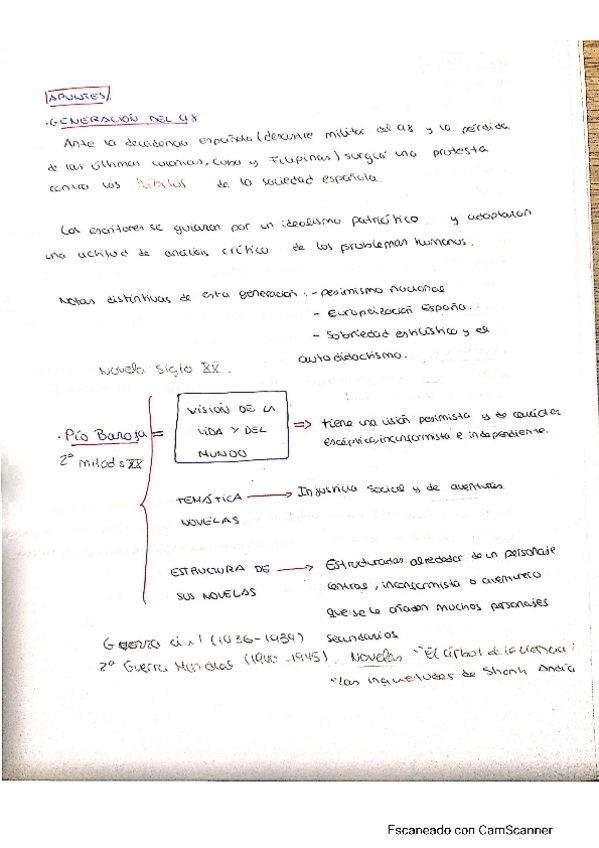 APUNTES.
·GENERACIÓN DEL 98
Ante la decadencia española (desastre militar del 98 y la pérdida
de las últimas colonias, Cuba y Filipinas) surgió una protesta
contra los de la sociedad española.
Los escritores se guiaron por un idealismo patriótico y adoptaron
una actitud de análisis crítico de los problemas humanos.
Notas distintivas de esta generación: - pesimismo nacional
- Europeización España.
- Sobriedad estilística y el
autodidactismo.
Novela siglo XX.
·Pío Baroja =
2ª mitad s XX
VISIÓN DE LA
VIDA Y DEL
MUNDO
=> tiene una visión pesimista y de carácter
escéptico, inconformista e independiente.
TEMÁTICA
NOVELAS
→ Injusticia social y de aventuras.
ESTRUCTURA DE
SUS NOVELAS
→ Estructuradas alrededor de un personaje
central, inconformista o aventurero
que se le añaden muchos personajes
secundarios
Guerra civil (1936-1939)
2ª Guerra Mundial (1940-1945). Novelas "El árbol de la ciencia:
"Las inquietudes de Shanti Andía
Escaneado con CamScanner